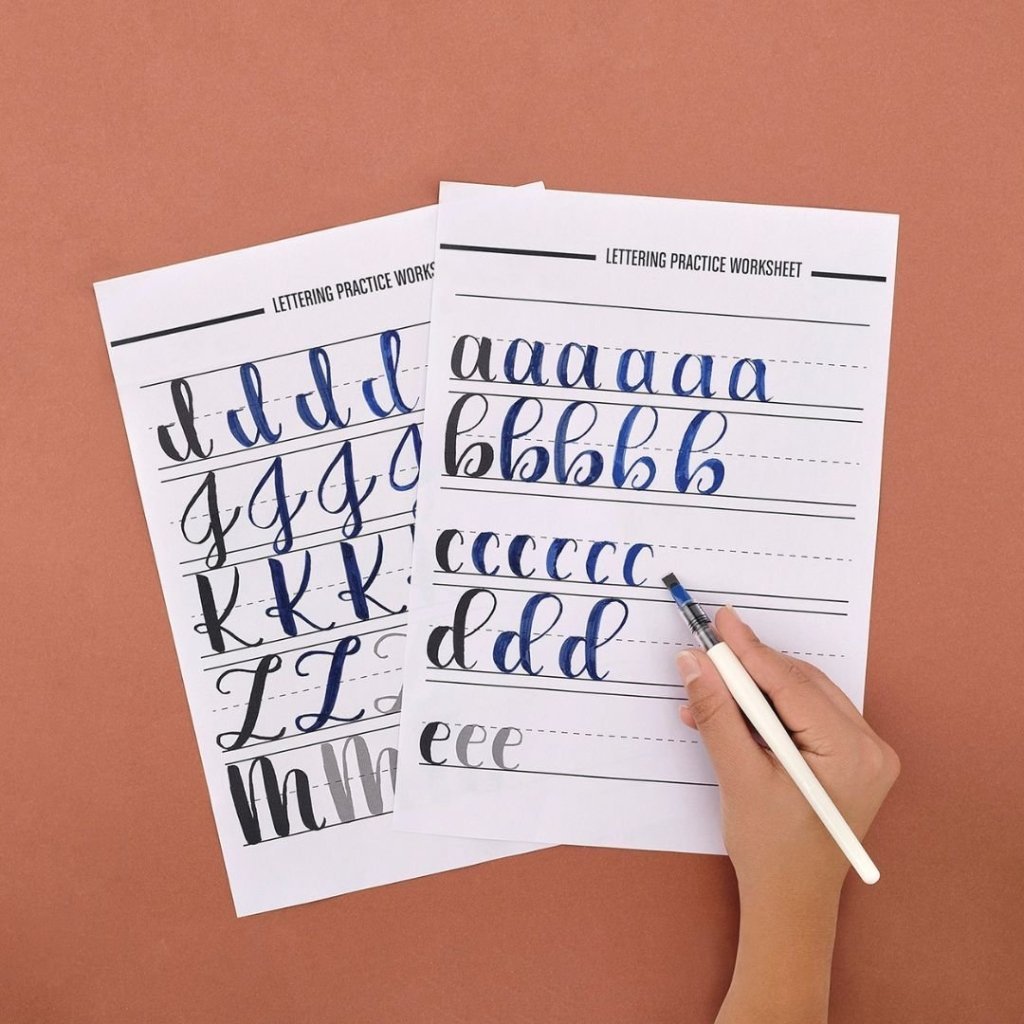 LETTERING PRACTICE WORKS
d d d d
g g g
K K K
L L
m m
LETTERING PRACTICE WORKSHEET
a a a a a a
b b b b b
c c c c c c
d d d
e e e